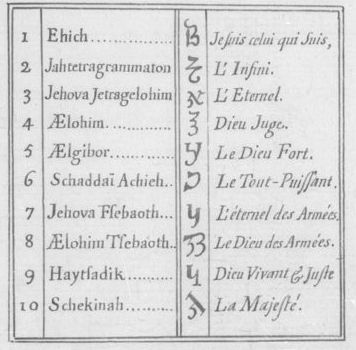 1 Ehich............ Je suis celui qui Suis,
2 Jahtetragrammaton L'Infini.
3 Jehova Jetragelohim L'Eternel.
4 Ælohim............ Dieu Juge.
5 Ælgibor........... Le Dieu Fort.
6 Schaddaï Achieh.. Le Tout-Puissant.
7 Jehova Tsebaoth... L'éternel des Armées.
8 Ælohim Tsebaoth.. Le Dieu des Armées.
9 Haytsadik........ Dieu Vivant & Juste
10 Schekinah........ La Majesté.